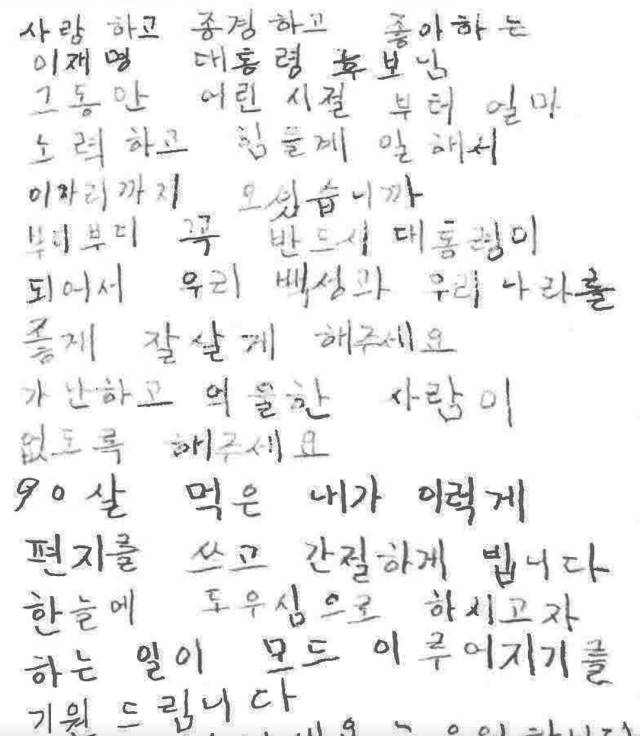 사랑하고 존경하고 좋아하는
이재명 대통령 후보님
그동안 어린 시절 부터 얼마
노력하고 힘들게 일해서
이자리까지 오싰습니까
부디부디 꼭 반드시 대통령이
되어서 우리 백성과 우리 나라를
좋게 잘살게 해주세요
가난하고 억울한 사람이
없도록 해주세요
90살 먹은 내가 이렇게
편지를 쓰고 간절하게 빕니다
한늘에 도우심으로 하시고자
하는 일이 모드 이루어지기를
기원 드립니다